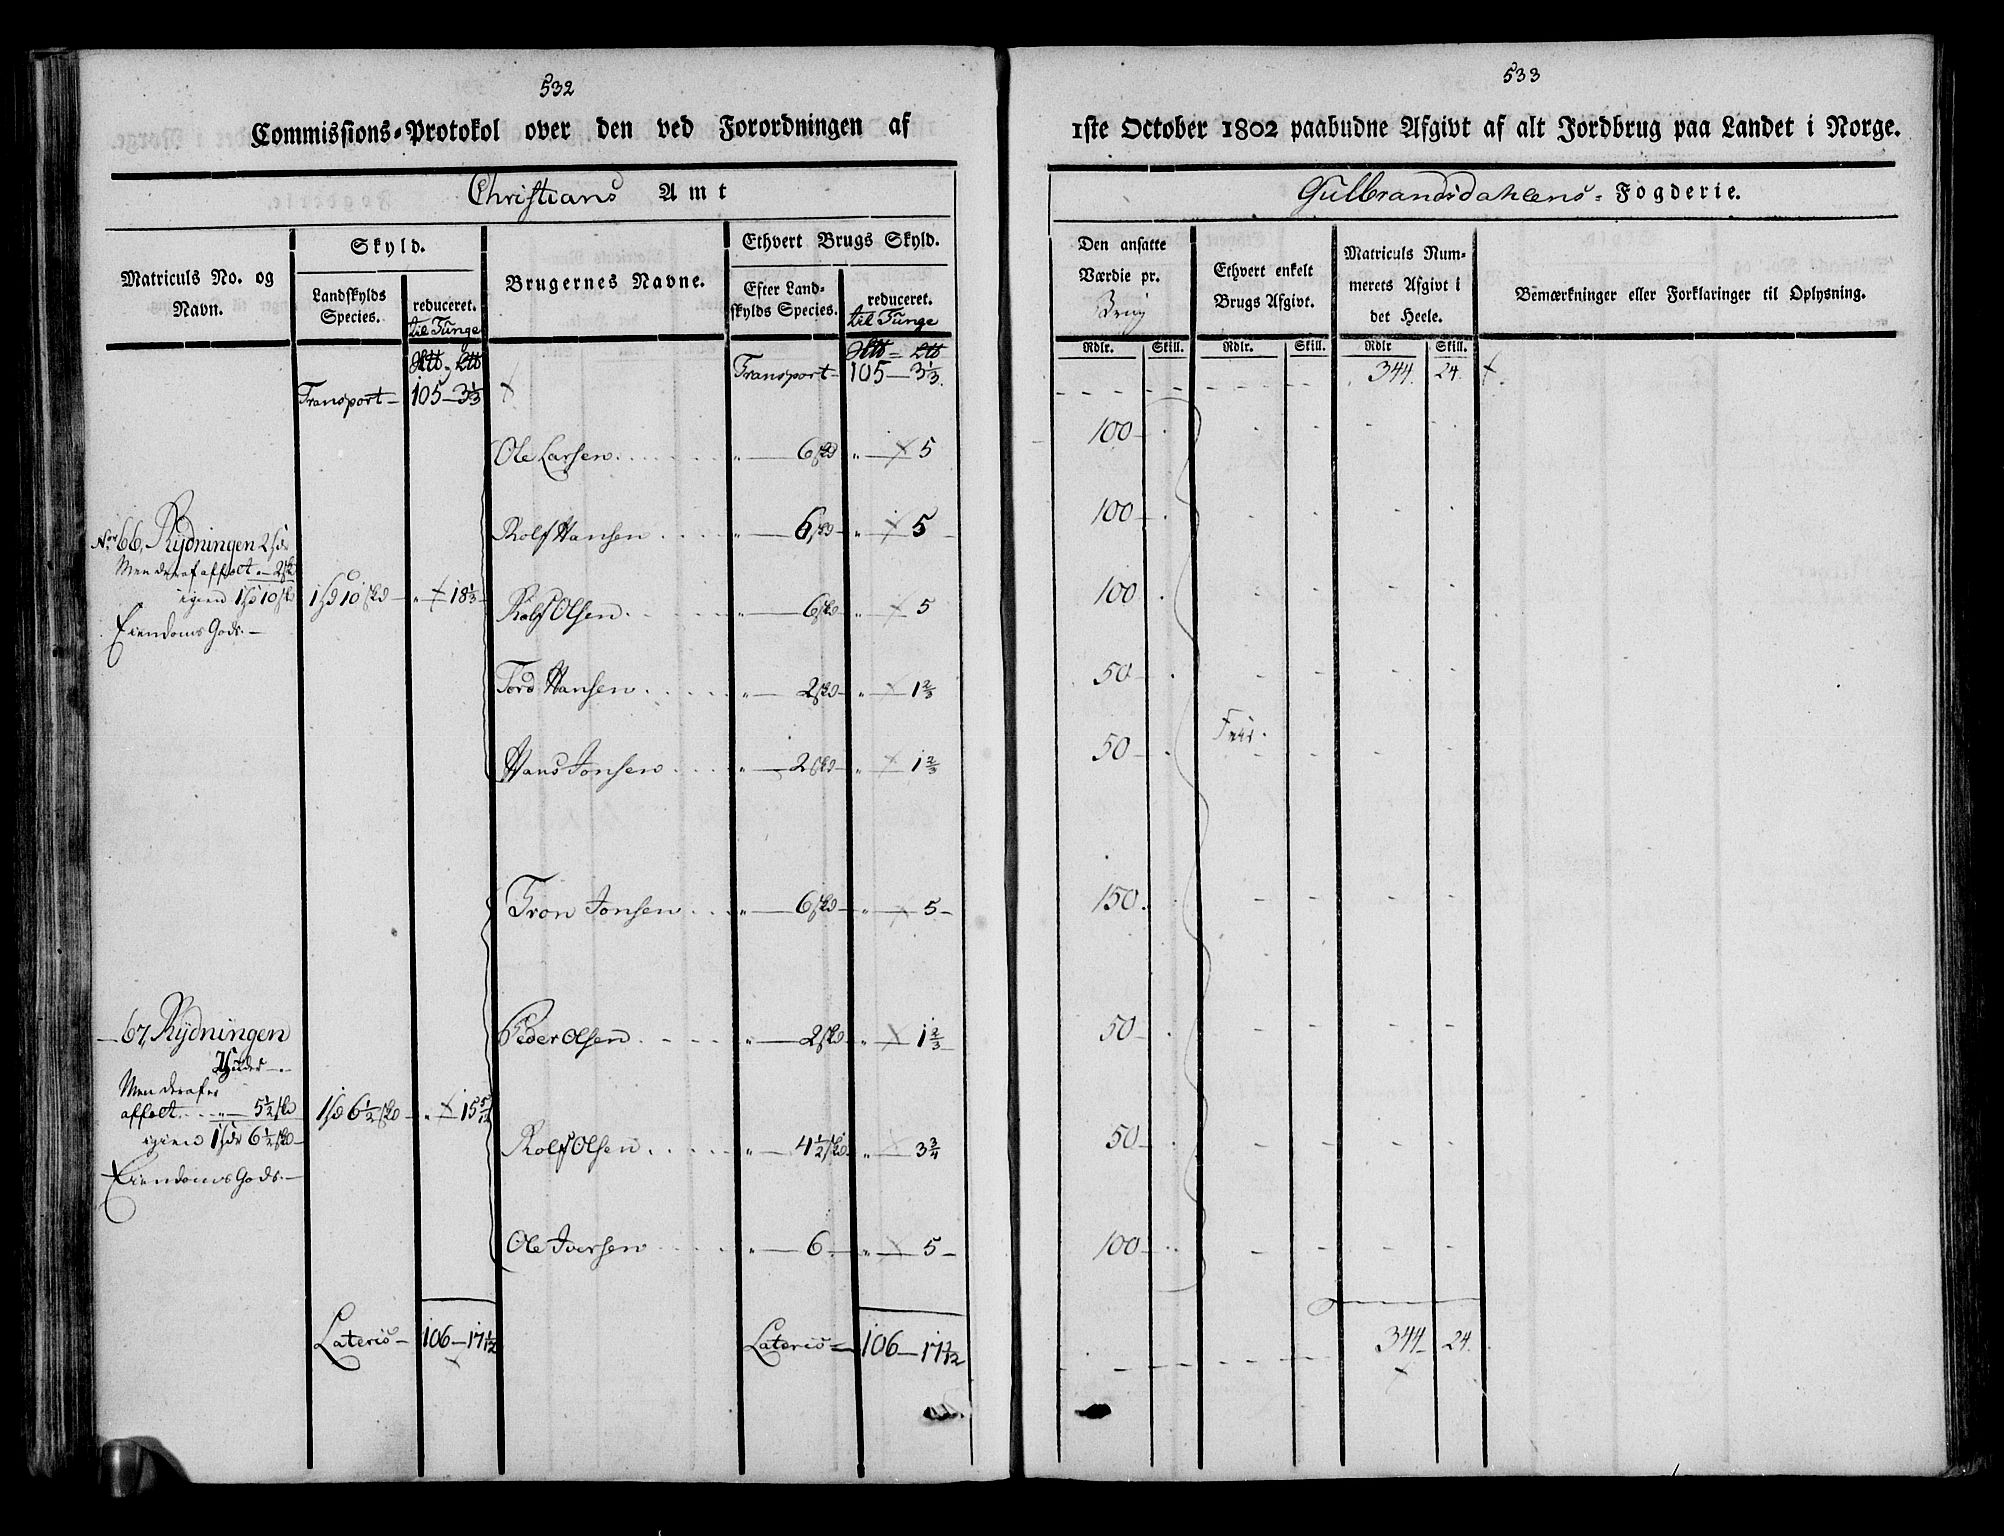 532
Commissions-Protokol over den ved Forordningen af
Christians Amt
Matriculs No. og Navn.
Skyld.
Landskylds Species.
reduceret.
til Tunge
Brugernes Navne.
Ethvert Brugs Skyld.
Efter Landskylds Species.
reduceret.
til Tunge
Transport — 105 — 3 1/3
Transport — 105 — 3 1/3
Ole Larsen . . . " — 6 skd " — 5
Rolf Hansen . . . " — 6 skd — " — 5 —
No 66, Rydningen 2 sde
Men deraf afført " — 2 skd
igien 1 sd 10 skd 1 sd 10 skd — " — 18 1/3
Eiendoms Gods. —
Rolf Olsen . . . " — 6 skd " — 5
Tord Hansen . . . " — 2 skd — " — 1 2/3
Hans Jonsen . . . " — 2 skd — " — 1 2/3
Tron Jonsen . . . " — 6 skd — " — 5 —
— 67, Rydningen
2 Huder —
Men deraf er
afført . . . " — 5 1/2 skd 1 sd 6 1/2 skd — " — 15 5/12
igien 1 sde 6 1/2 skd —
Eiendoms Gods. —
Peder Olsen . . . " — 2 skd " — 1 2/3
Rolf Olsen . . . " — 4 1/2 skd. " — 3 3/4
Ole Iversen . . . " — 6. " — 5 —
Lateris — 106 — 17 1/12
Lateris — 106 — 17 1/12
533
1ste October 1802 paabudne Afgivt af alt Jordbrug paa Landet i Norge.
Gulbrandsdahlens Fogderie.
Den ansatte Værdie pr.
Brug
Ethvert enkelt Brugs Afgivt.
Matriculs Nummerets Afgivt i det Heele.
Bemærkninger eller Forklaringer til Oplysning.
Rdlr. Skill. Rdlr. Skill. Rdlr Skill.
344. 24.
100 —
100 —
100
50
50 —
150.
50 —
50 —
100 —
344 — 24.